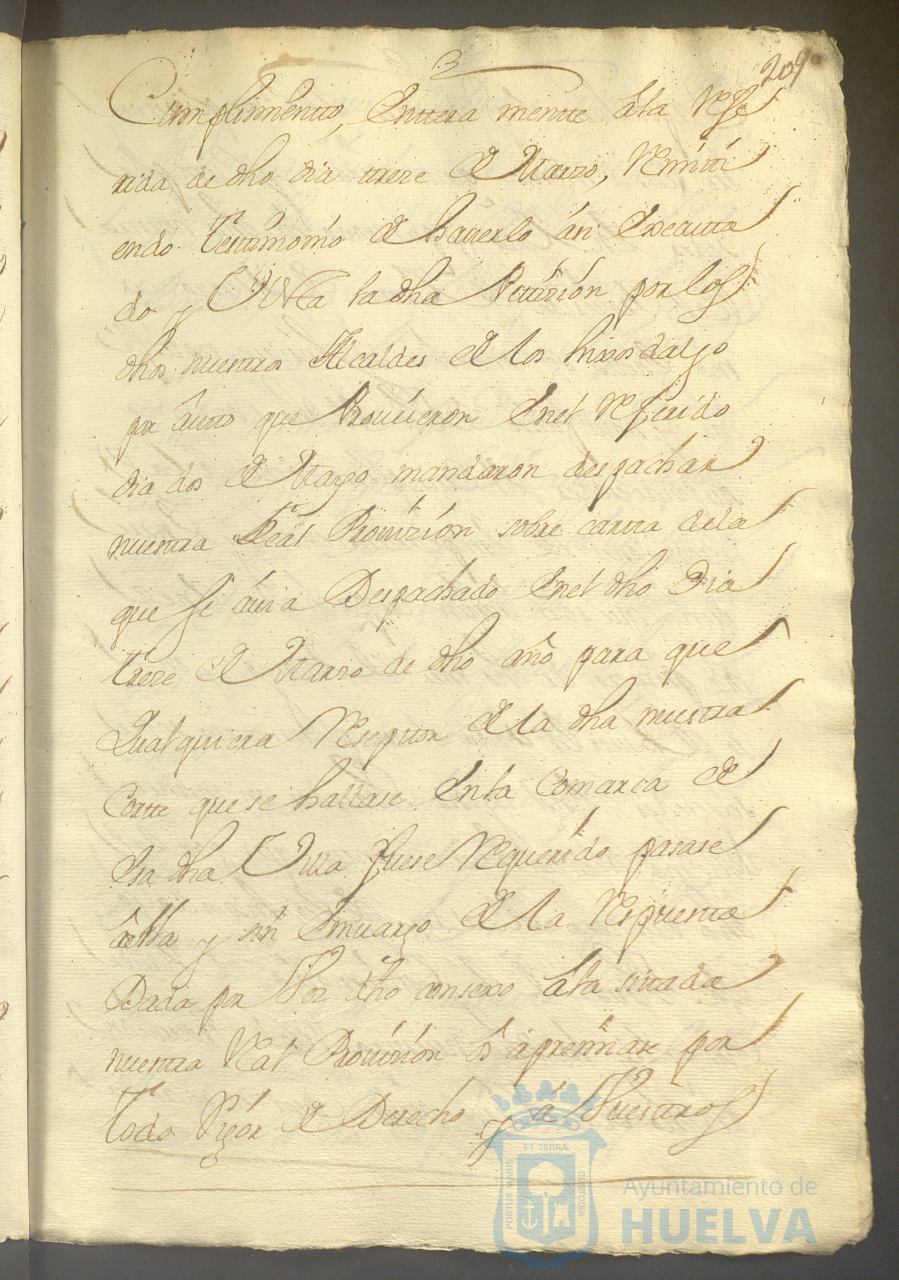 209
Cumplimento, Entera mente ala Refe
rida de dho dia treze de Marzo, Remiti
endo Testimonio de haverlo ân Executa
do y Vista la dha Peticion por los
dhos nuestros Alcaldes de los hixosdalgo
por âuto que Proveieron Enel Referido
dia dos de Mayo mandaron despachar
nuestra Real Provizion sobre carta dela
que se âvia Despachado Enel dho Dia
treze de Marzo de dho año para que
Qualquiera Reseptor de la dha nuestra
Corte que se hallase Enla Comarca de
Esa dha Villa fuese Requerido pasase
âella y sin Emvargo de la Respuesta
Dada por Vos dho consexo ala sitada
nuestra Real Provizion ôs apremiase por
todo Rigor de Derecho y â Vuestros
PORTUS MARIS ET TERRÆ CUSTODIA
Ayuntamiento de
HUELVA